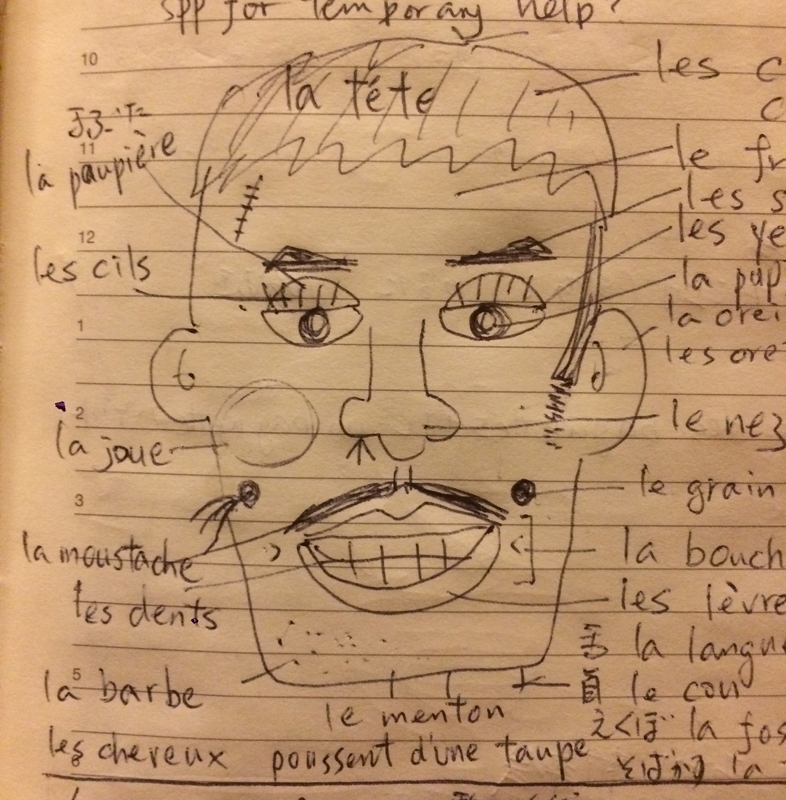 spp for temporary help?
10
la téte
les c
c
11
la paupière
le fr
les s
12
les cils
les ye
la pup
1
la orei
les ore
2
la joue
le nez
3
le grain
la moustache
la bouch
les dents
les lèvre
舌 la langu
5
la barbe
首 le cou
le menton
えくぼ la fos
les cheveux poussent d'une taupe
そばかす la